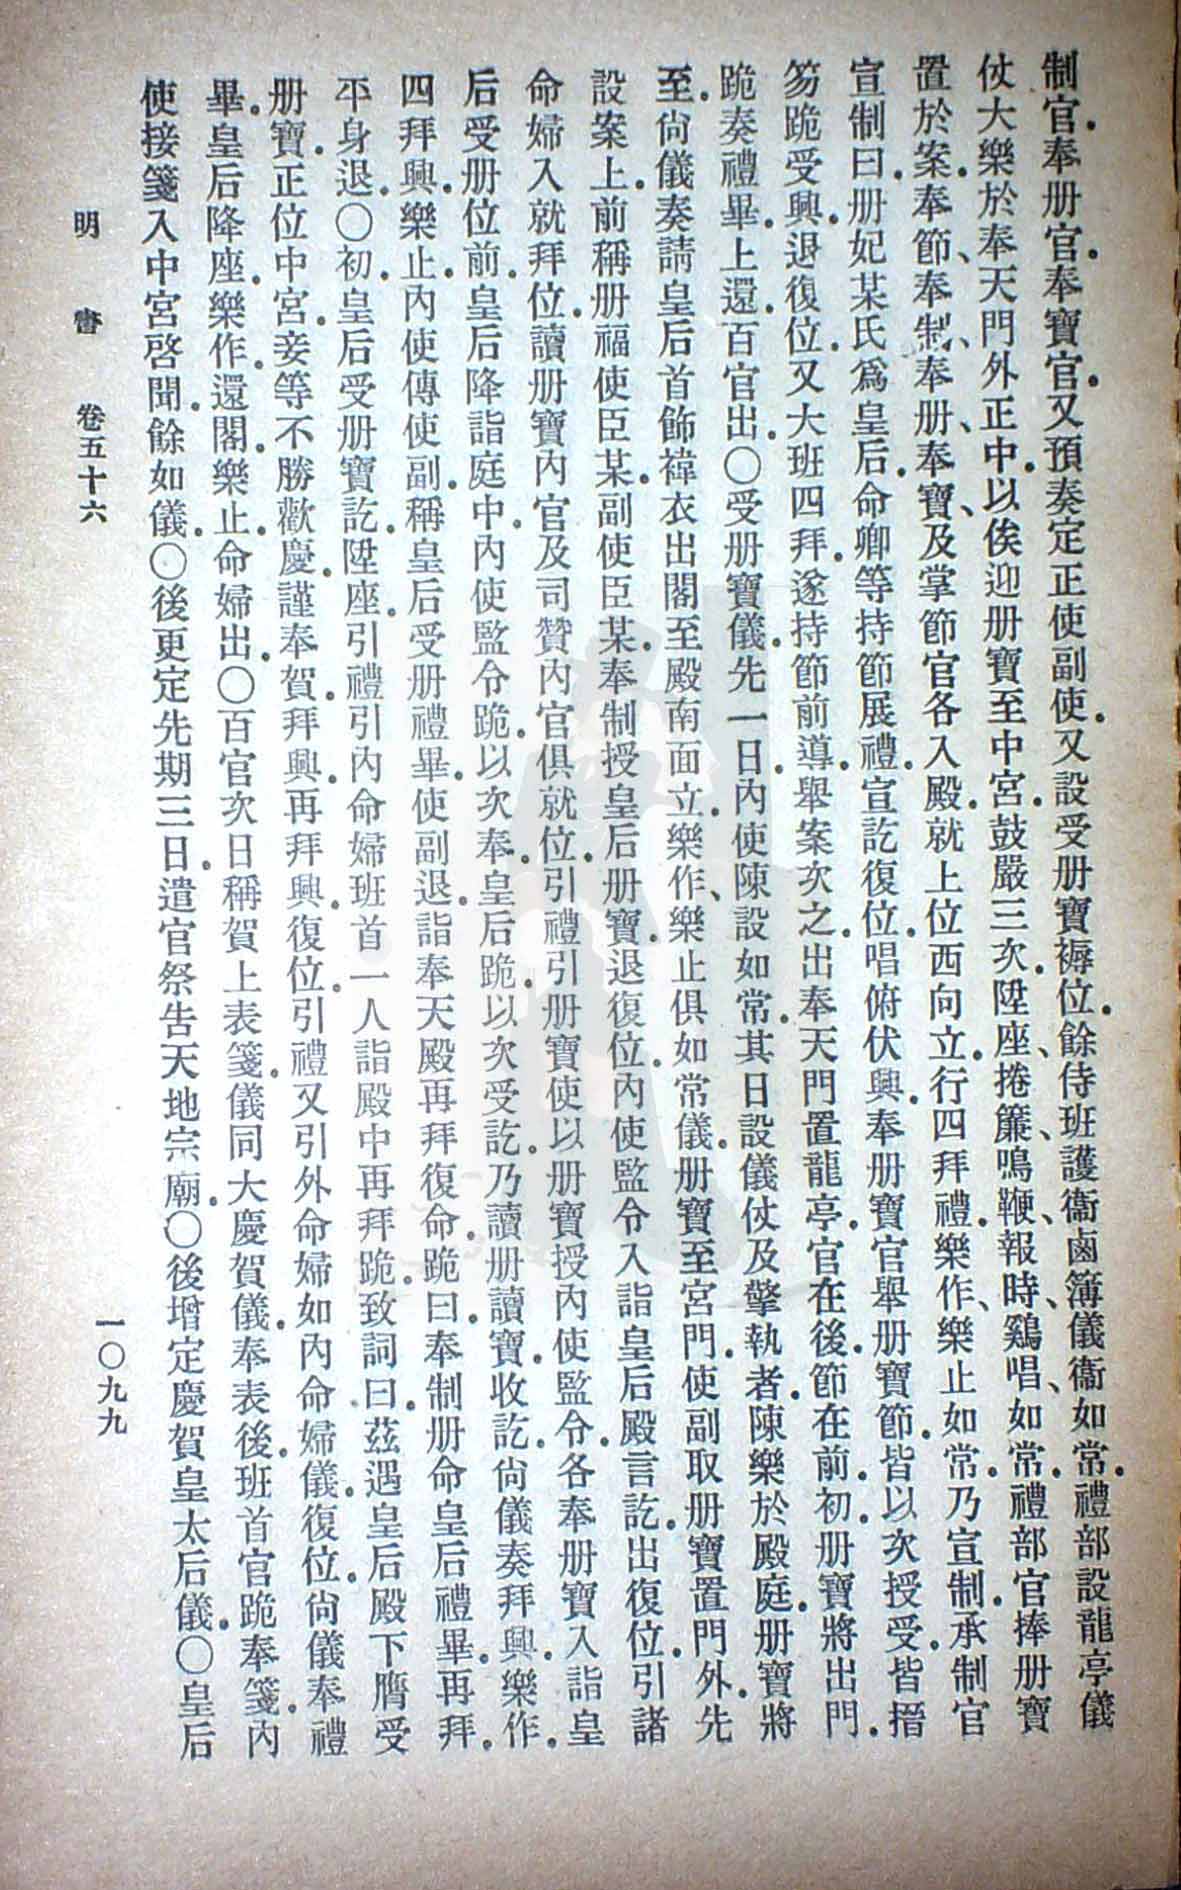 制官。奉册官。奉寶官。又預奏定正使副使。又設受册寶褥位。餘侍班護衞鹵簿儀衞如常。禮部設龍亭儀
仗大樂於奉天門外正中。以俟迎册寶至中宮。鼓嚴三次。陞座、捲簾、鳴鞭、報時、鷄唱、如常。禮部官捧册寶
置於案。奉節、奉制、奉册、奉寶、及掌節官各入殿。就上位西向立。行四拜禮。樂作、樂止如常。乃宣制。承制官
宣制曰。册妃某氏爲皇后。命卿等持節展禮。宣訖復位。唱俯伏興。奉册寶官舉册寶節。皆以次授受。皆搢
笏跪受興。退復位。又大班四拜。遂持節前導。舉案次之。出奉天門置龍亭。官在後。節在前。初。册寶將出門。
跪奏禮畢。上還。百官出。〇受册寶儀。先一日。內使陳設如常。其日設儀仗及擎執者。陳樂於殿庭。册寶將
至。尙儀奏請皇后首飾褘衣出閣。至殿南面立。樂作、樂止俱如常儀。册寶至宮門。使副取册寶置門外。先
設案上。前稱册禮使臣某。副使臣某。奉制授皇后册寶。退復位。內使監令入詣皇后殿。言訖。出復位。引諸
命婦入就拜位。讀册寶內官及司贊內官俱就位。引禮引册寶使以册寶授內使監令。各奉册寶入詣皇
后受册位前。皇后降詣庭中。內使監令跪。以次奉。皇后跪。以次受訖。乃讀册讀寶。收訖。尙儀奏拜興。樂作。
四拜興。樂止。內使傳使副。稱皇后受册禮畢。使副退。詣奉天殿再拜復命。跪曰。奉制册命皇后禮畢。再拜。
平身退。〇初。皇后受册寶訖。陞座。引禮引內命婦班首一人詣殿中再拜跪。致詞曰。茲遇皇后殿下膺受
册寶。正位中宮。妾等不勝歡慶。謹奉賀。拜興。再拜興。復位。引禮又引外命婦如內命婦儀。復位。尙儀奉禮
畢。皇后降座。樂作。還閣。樂止。命婦出。〇百官次日稱賀。上表箋。儀同大慶賀儀。奉表後。班首官跪奉箋。內
使接箋入中宮啓聞。餘如儀。〇後更定先期三日。遣官祭告天地宗廟。〇後增定慶賀皇太后儀。〇皇后
明書 卷五十六 一〇九九